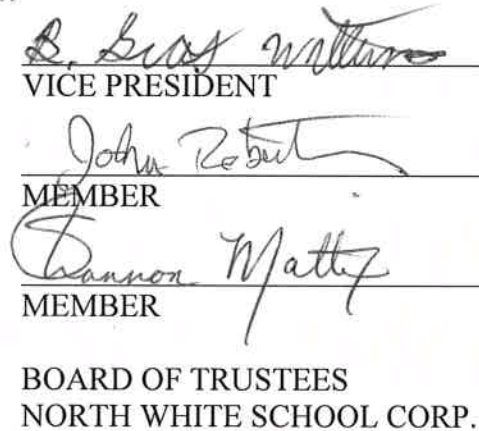 B. Williams
VICE PRESIDENT
John
MEMBER
Shannon Mattix
MEMBER
BOARD OF TRUSTEES
NORTH WHITE SCHOOL CORP.